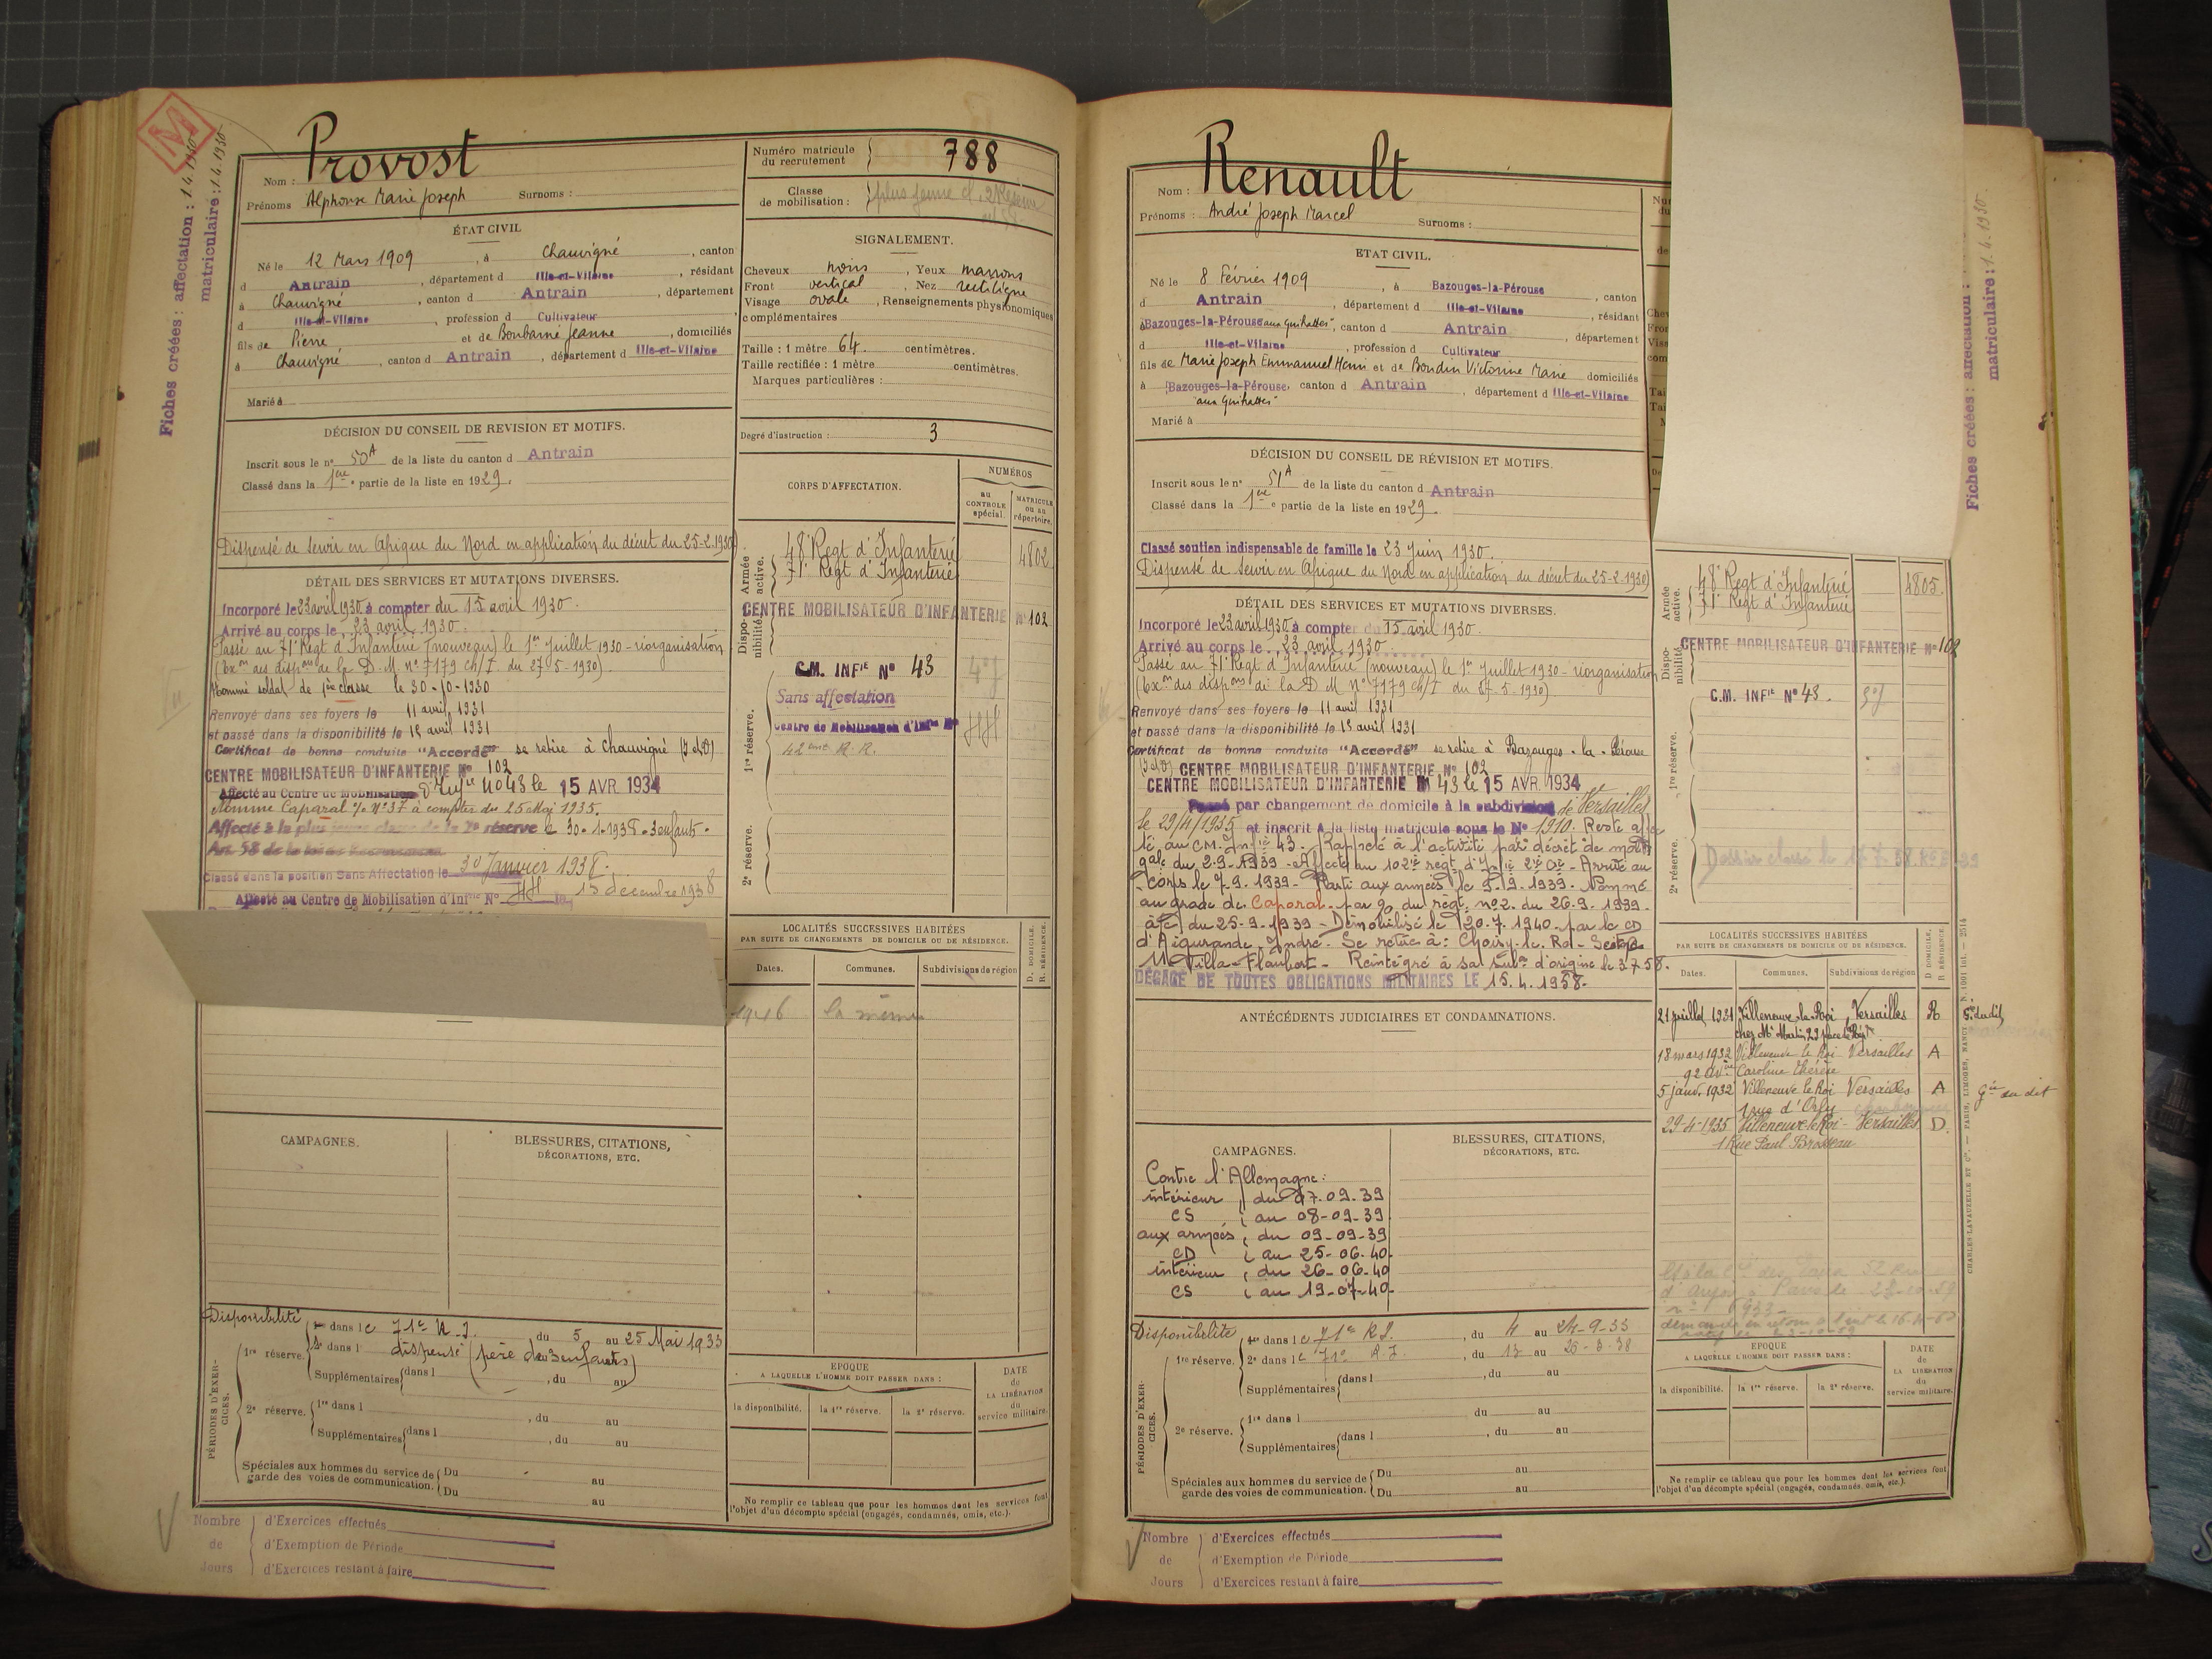 M
Fiches créées : affectation : 1.4.1930
matriculaire : 1.4.1930
Nom : Provost
Prénoms Alphonse Marie Joseph Surnoms :
ÉTAT CIVIL
Né le 12 Mars 1909, à Chauvigné, canton
d Antrain, département d Ille-et-Vilaine, résidant
à Chauvigné, canton d Antrain, département
d Ille-et-Vilaine, profession d Cultivateur
fils de Pierre et de Jeanne, domiciliés
à Chauvigné, canton d Antrain, département d Ille-et-Vilaine
Marié à
DÉCISION DU CONSEIL DE REVISION ET MOTIFS.
Inscrit sous le nº 50A de la liste du canton d Antrain
Classé dans la 1ère partie de la liste en 1929.
Dispensé de servir en Afrique du Nord en application du décret du 25-2-1930
DÉTAIL DES SERVICES ET MUTATIONS DIVERSES.
Incorporé le 23 avril 1930 à compter du 15 avril 1930.
Arrivé au corps le 23 avril 1930.
Passé au 71e Regt d'Infanterie (nouveau) le 1er Juillet 1930 - réorganisation
(Exon des dispons de la D.M. nº 7179 Ch/I du 27-5-1930).
Nommé soldat de 1ère classe le 30-10-1930
Renvoyé dans ses foyers le 11 avril 1931
et passé dans la disponibilité le 15 avril 1931
Certificat de bonne conduite "Accordé" se retire à Chauvigné (I et V)
CENTRE MOBILISATEUR D'INFANTERIE Nº 102
Affecté au Centre de Mobilisation d'Infie Nº 43 le 15 AVR 1934
Nommé Caporal à compter du 25 Mai 1935.
Affecté à la plus jeune classe de la 2e réserve le 30-1-1938 - 3 enfants.
Art. 58 de la loi de Recrutement
Classé dans la position Sans Affectation le 30 Janvier 1938.
Affecté au Centre de Mobilisation d'Infrie Nº le 15 décembre 1938
CAMPAGNES.
BLESSURES, CITATIONS,
DÉCORATIONS, ETC.
PÉRIODES D'EXERCICES.
Disponibilité
1re réserve.
1re dans le 71e R.I. du 5 au 25 Mai 1933
2e dans l dispensé (père de 3 enfants)
Supplémentaires dans l , du au
2e réserve.
1re dans l , du au
Supplémentaires dans l , du au
Spéciales aux hommes du service de garde des voies de communication.
Du au
Du au
Nombre de Jours
d'Exercices effectués
d'Exemption de Période
d'Exercices restant à faire
Numéro matricule du recrutement 788
Classe de mobilisation : plus jeune cl. 2e Réserve
SIGNALEMENT.
Cheveux noirs, Yeux marrons
Front vertical, Nez rectiligne
Visage ovale, Renseignements physionomiques
complémentaires
Taille : 1 mètre 64 centimètres.
Taille rectifiée : 1 mètre centimètres.
Marques particulières :
Degré d'instruction : 3
CORPS D'AFFECTATION.
NUMÉROS
au CONTROLE spécial.
MATRICULE ou au répertoire.
Armée active.
48e Regt d'Infanterie 4802
71e Regt d'Infanterie
Disponibilité.
CENTRE MOBILISATEUR D'INFANTERIE Nº 102
1re réserve.
C.M. INFIE Nº 43
Sans affectation
Centre de Mobilisation d'Infrie Nº
2e réserve.
LOCALITÉS SUCCESSIVES HABITÉES
PAR SUITE DE CHANGEMENTS DE DOMICILE OU DE RÉSIDENCE.
D. DOMICILE. R. RÉSIDENCE.
Dates. Communes. Subdivisions de région
EPOQUE
A LAQUELLE L'HOMME DOIT PASSER DANS :
DATE de LA LIBÉRATION du service militaire.
la disponibilité. la 1re réserve. la 2e réserve.
Ne remplir ce tableau que pour les hommes dont les services font
l'objet d'un décompte spécial (engagés, condamnés, omis, etc.).
Nom : Renault
Prénoms : André Joseph Marcel Surnoms :
ETAT CIVIL.
Né le 8 Février 1909, à Bazouges-la-Pérouse, canton
d Antrain, département d Ille-et-Vilaine, résidant
à Bazouges-la-Pérouse, canton d Antrain, département
d Ille-et-Vilaine, profession d Cultivateur
fils de Marie Joseph Emmanuel Henri et de Boudin Victorine Marie domiciliés
à Bazouges-la-Pérouse, canton d Antrain, département d Ille-et-Vilaine
Marié à
DÉCISION DU CONSEIL DE RÉVISION ET MOTIFS.
Inscrit sous le nº 51A de la liste du canton d Antrain
Classé dans la 1ère partie de la liste en 1929.
Classé soutien indispensable de famille le 23 Juin 1930.
Dispensé de servir en Afrique du Nord en application du décret du 25-2-1930
DÉTAIL DES SERVICES ET MUTATIONS DIVERSES.
Incorporé le 23 avril 1930 à compter du 15 avril 1930.
Arrivé au corps le 23 avril 1930
Passé au 71e Regt d'Infanterie (nouveau) le 1er Juillet 1930 - réorganisation
(Exon des dispons de la D M nº 7179 Ch/I du 27-5-1930)
Renvoyé dans ses foyers le 11 avril 1931
et passé dans la disponibilité le 15 avril 1931
Certificat de bonne conduite "Accordé" se retire à Bazouges-la-Pérouse
(I et V) CENTRE MOBILISATEUR D'INFANTERIE Nº 102
CENTRE MOBILISATEUR D'INFANTERIE Nº 43 le 15 AVR. 1934
Passé par changement de domicile à la subdivision de Versailles
le 29/4/1935 et inscrit à la liste matricule sous le Nº 1910. Reste affec
té au CM. Infie 43. Rappelé à l'activité par décret de mobon
gale du 2-9-1939 - Affecté au 102e régt d'Infie 2e Cie - Arrivé au
corps le 7.9.1939 - Parti aux armées le 9.9.1939. Nommé
au grade de Caporal par o/ du régt nº 2 du 26.9.1939
à/c du 25-9-1939 - Démobilisé le 20.7.1940 par le CD
d'Aigurande Indre. Se retire à : Choisy-le-Roi - Seine
11 Villa Flaubert - Réintégré à sa subon d'origine le 3.7.58.
DÉGAGÉ DE TOUTES OBLIGATIONS MILITAIRES LE 15.4.1958.
ANTÉCÉDENTS JUDICIAIRES ET CONDAMNATIONS.
CAMPAGNES.
Contre l'Allemagne :
intérieur du 07.09.39
CS au 08-09-39
aux armées du 09-09-39
CD au 25-06-40
intérieur du 26-06-40
CS au 19-07-40
BLESSURES, CITATIONS,
DÉCORATIONS, ETC.
PÉRIODES D'EXERCICES.
Disponibilité
1re réserve.
1re dans le 71e R.I., du 4 au 24-9-33
2e dans le 71e R.I., du 13 au
Supplémentaires dans l , du au
2e réserve.
1re dans l du au
Supplémentaires dans l , du au
Spéciales aux hommes du service de garde des voies de communication.
Du au
Du au
Nombre de Jours
d'Exercices effectués
d'Exemption de Période
d'Exercices restant à faire
Armée active.
48e Regt d'Infanterie 4805
71e Regt d'Infanterie
Disponibilité
CENTRE MOBILISATEUR D'INFANTERIE Nº 102
1re réserve.
C.M. INFIE Nº 43.
2e réserve.
LOCALITÉS SUCCESSIVES HABITÉES
PAR SUITE DE CHANGEMENTS DE DOMICILE OU DE RÉSIDENCE.
D. DOMICILE. R. RÉSIDENCE.
Dates. Communes. Subdivisions de région
21 juillet 1931 Villeneuve-le-Roi Versailles R
18 mars 1932 Villeneuve le Roi Versailles A
Caroline Thérèse
5 janv. 1932 Villeneuve le Roi Versailles A
1 rue d'Orly
29-4-1935 Villeneuve le Roi - Versailles D.
1 Rue Paul
EPOQUE
A LAQUELLE L'HOMME DOIT PASSER DANS :
DATE de LA LIBÉRATION du service militaire.
la disponibilité. la 1re réserve. la 2e réserve.
Ne remplir ce tableau que pour les hommes dont les services font
l'objet d'un décompte spécial (engagés, condamnés, omis, etc.).
Fiches créées : affectation :
matriculaire : 1.4.1930
CHARLES-LAVAUZELLE ET Cie. — PARIS, LIMOGES, NANCY